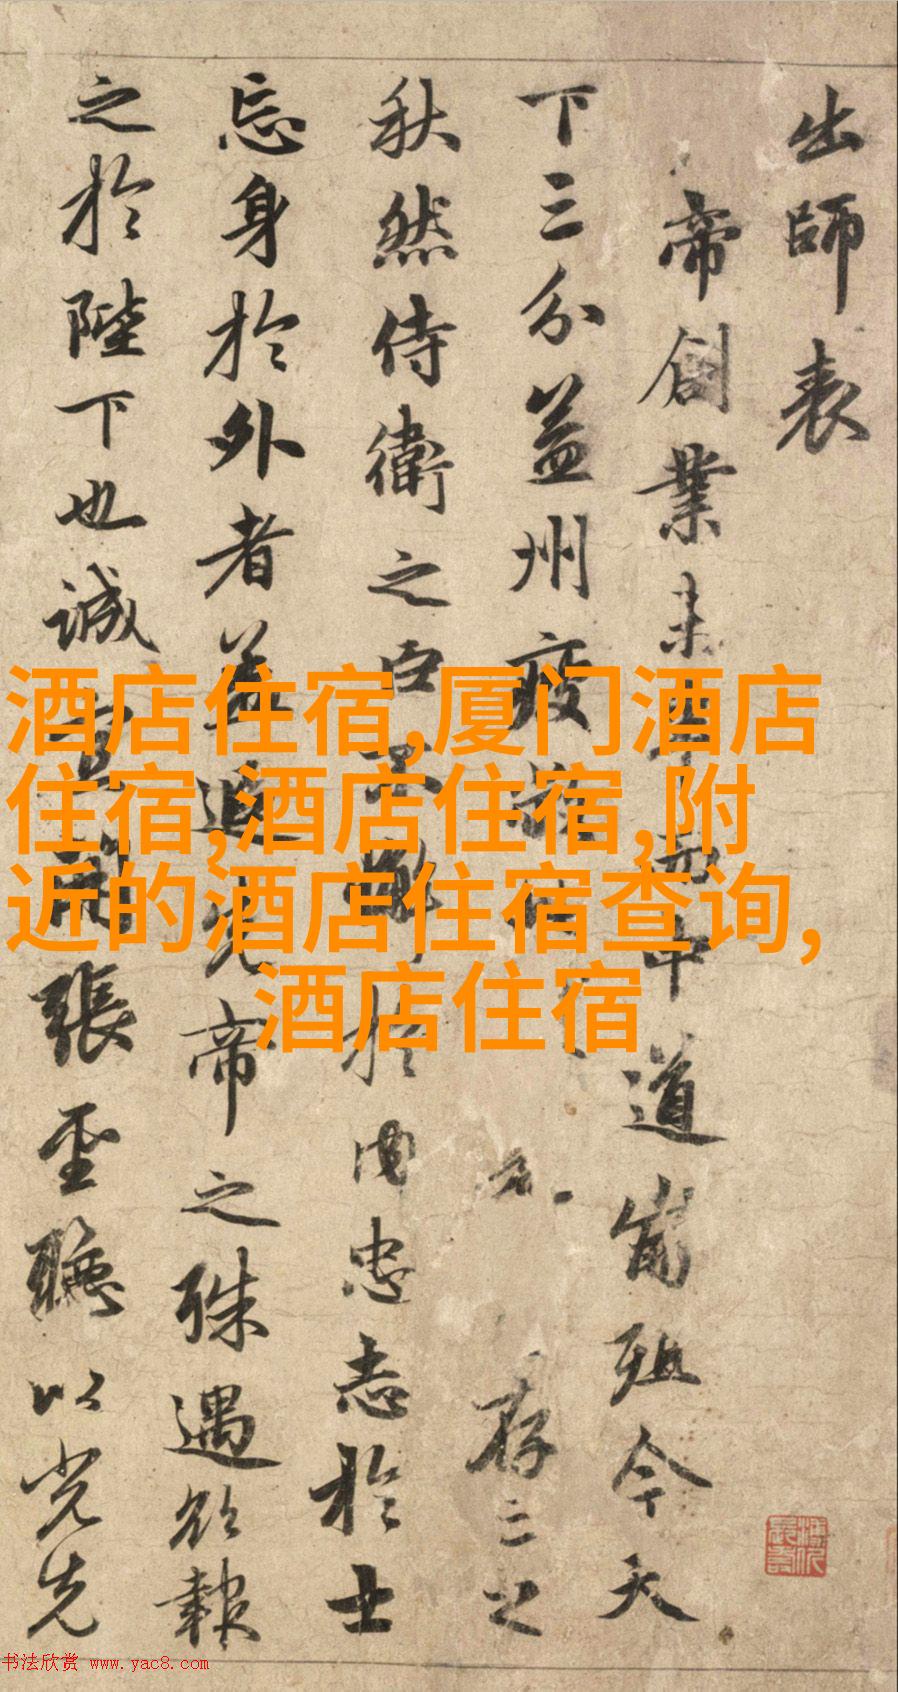 出師表
帝創業未半而中道崩殂今天
下三分益州疲存之
秋然侍衛之臣不懈於内忠志於士
忘身於外者蓋追先帝之殊遇欲報
之於陛下也誠宜開張聖聽以光先
酒店住宿,厦门酒店
住宿,酒店住宿,附
近的酒店住宿查询,
酒店住宿
书法欣赏 www.yac8.com